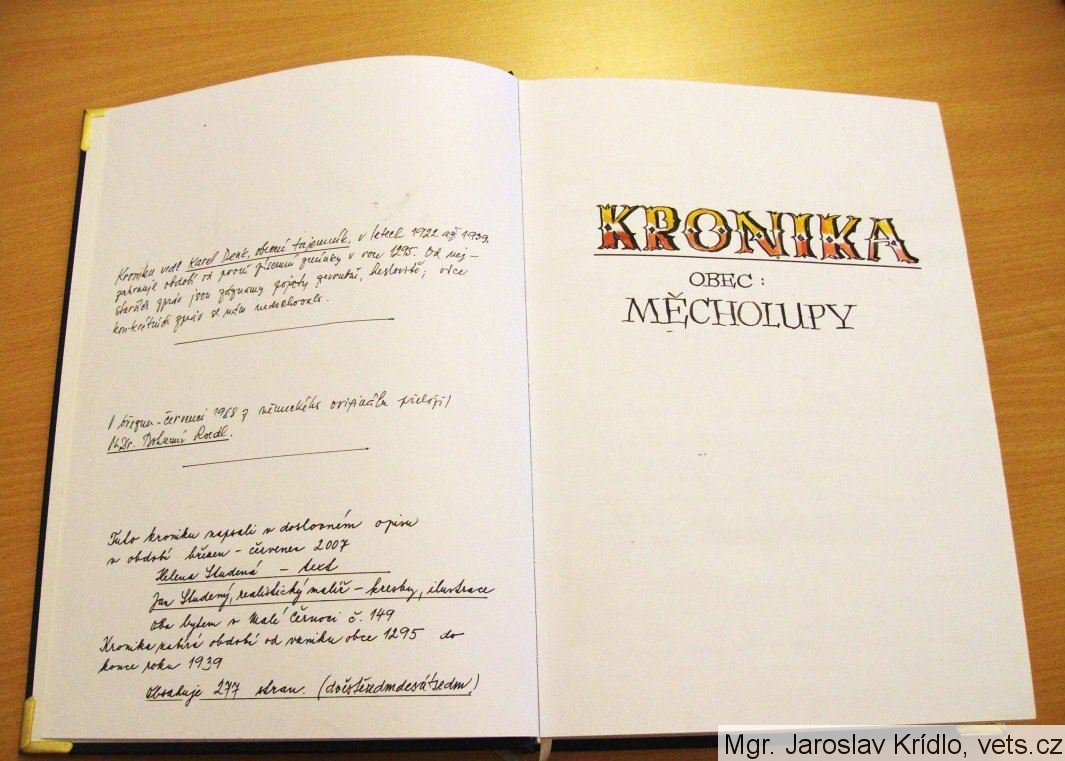 Kroniku vedl Karel Denk, obecní tajemník, v letech 1922 až 1939.
zahrnuje období od první písemné zmínky v roce 1295. Od nej-
starších zpráv jsou záznamy pojaty heslovitě, více
konkrétních zpráv se nám nedochovalo.
V březnu-červenci 1988 z německého originálu přeložil
PhDr. Bohumír Roedl.
Tuto kroniku napsali v doslovném opisu
v období březen - červenec 2007
Helena Studená - text
Jan Studený, realistický malíř - kresby, ilustrace
Oba bytem v Malé Černoci č. 149
Kronika nabírá období od vzniku obce 1295 do
konce roku 1939
Obsahuje 277 stran. (dvěstěsedmdesátsedm)
KRONIKA
OBEC:
MĚCHOLUPY
Mgr. Jaroslav Krídlo, vets.cz